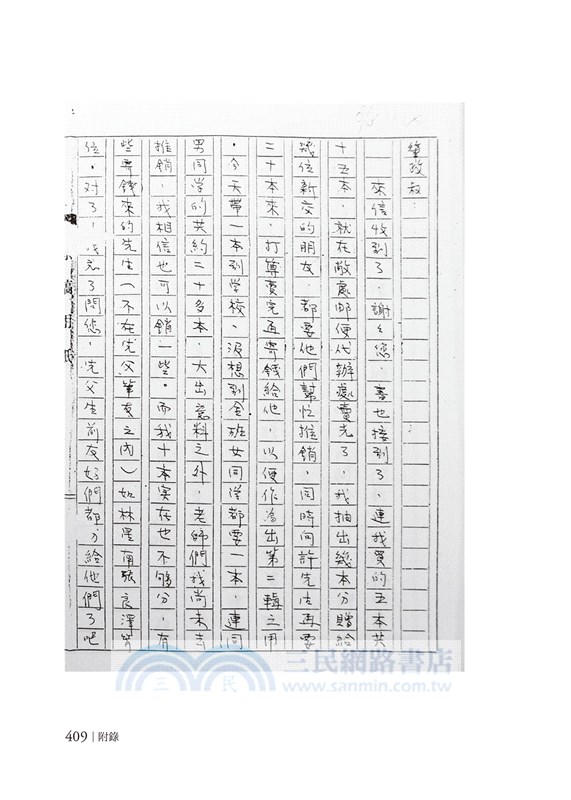 肇政叔：
來信收到了，謝々您，書也接到了，連我買的五本共
十五本，就在敝處郵便代辦處賣光了，我抽出幾本分贈給
幾位新交的朋友，都要他們幫忙推銷，同時向許先生再要
二十本來，打算賣完再寄錢給他，以便作為出第二輯之用
，今天帶一本到學校，沒想到全班女同学都要一本，連同
男同学的共約二十多本，大出意料之外，老師們我尚未去
推銷，我相信也可以銷一些。而我十本實在也不够分，有
些寄錢來的先生（不在先父筆友之內）如林 南張良澤等
位。對了，忘了問您，先父生前友好們都分給他們了吧
三民網路書店
www.sanmin.com.tw
409 | 附錄